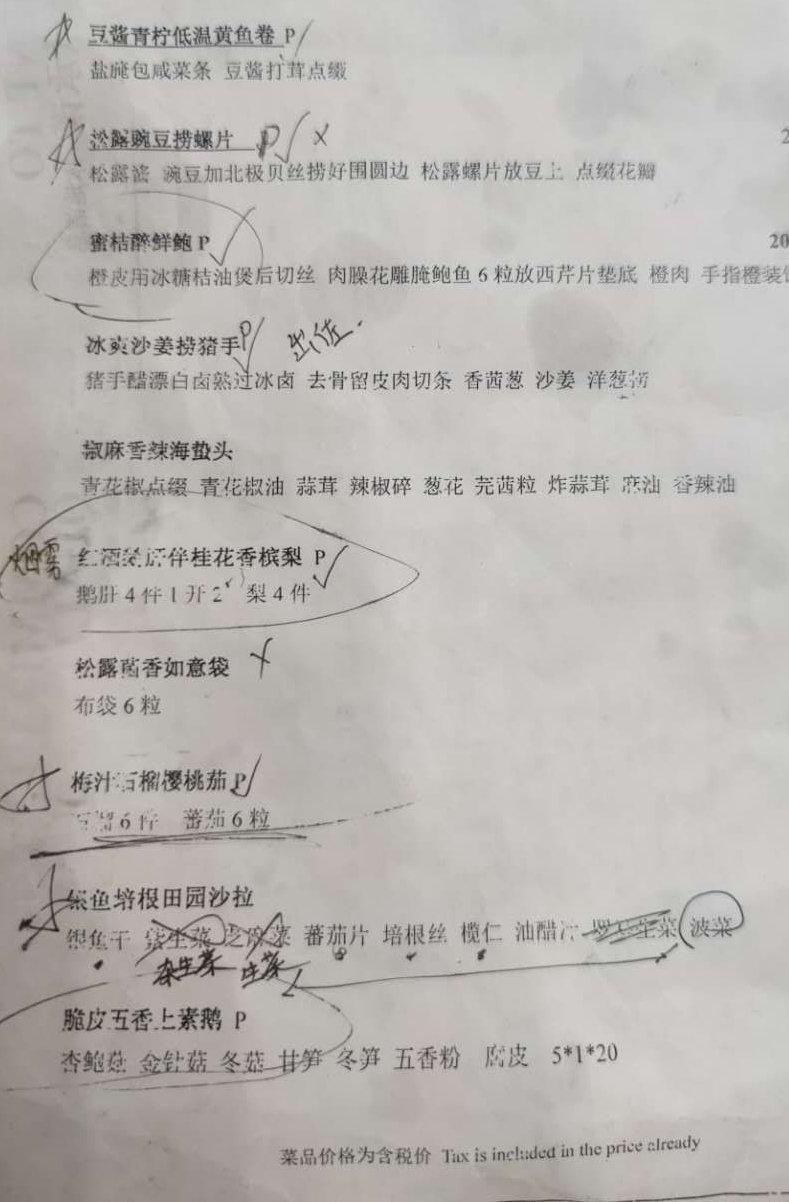 豆酱青柠低温黄鱼卷 P
盐腌包咸菜条 豆酱打茸点缀
松露豌豆捞螺片 P
2
松露酱 豌豆加北极贝丝捞好围圆边 松露螺片放豆上 点缀花瓣
蜜桔醉鲜鲍 P
20
橙皮用冰糖桔油煲后切丝 肉臊花雕腌鲍鱼 6 粒放西芹片垫底 橙肉 手指橙装
冰爽沙姜捞猪手 P 出佐.
猪手醋漂白卤熟过冰卤 去骨留皮肉切条 香茜葱 沙姜 洋葱捞
椒麻香辣海蛰头
青花椒点缀 青花椒油 蒜茸 辣椒碎 葱花 芫茜粒 炸蒜茸 麻油 香辣油
烟雾 红酒鹅肝伴桂花香槟梨 P
鹅肝 4 件 1 开 2 梨 4 件
松露菌香如意袋
布袋 6 粒
梅汁石榴樱桃茄 P
6 件 蕃茄 6 粒
银鱼培根田园沙拉
银鱼干 生菜 芝麻菜 蕃茄片 培根丝 榄仁 油醋汁 生菜 波菜
杂生菜 生菜
脆皮五香上素鹅 P
杏鲍菇 金针菇 冬菇 甘笋 冬笋 五香粉 腐皮 5*1*20
菜品价格为含税价 Tax is included in the price already